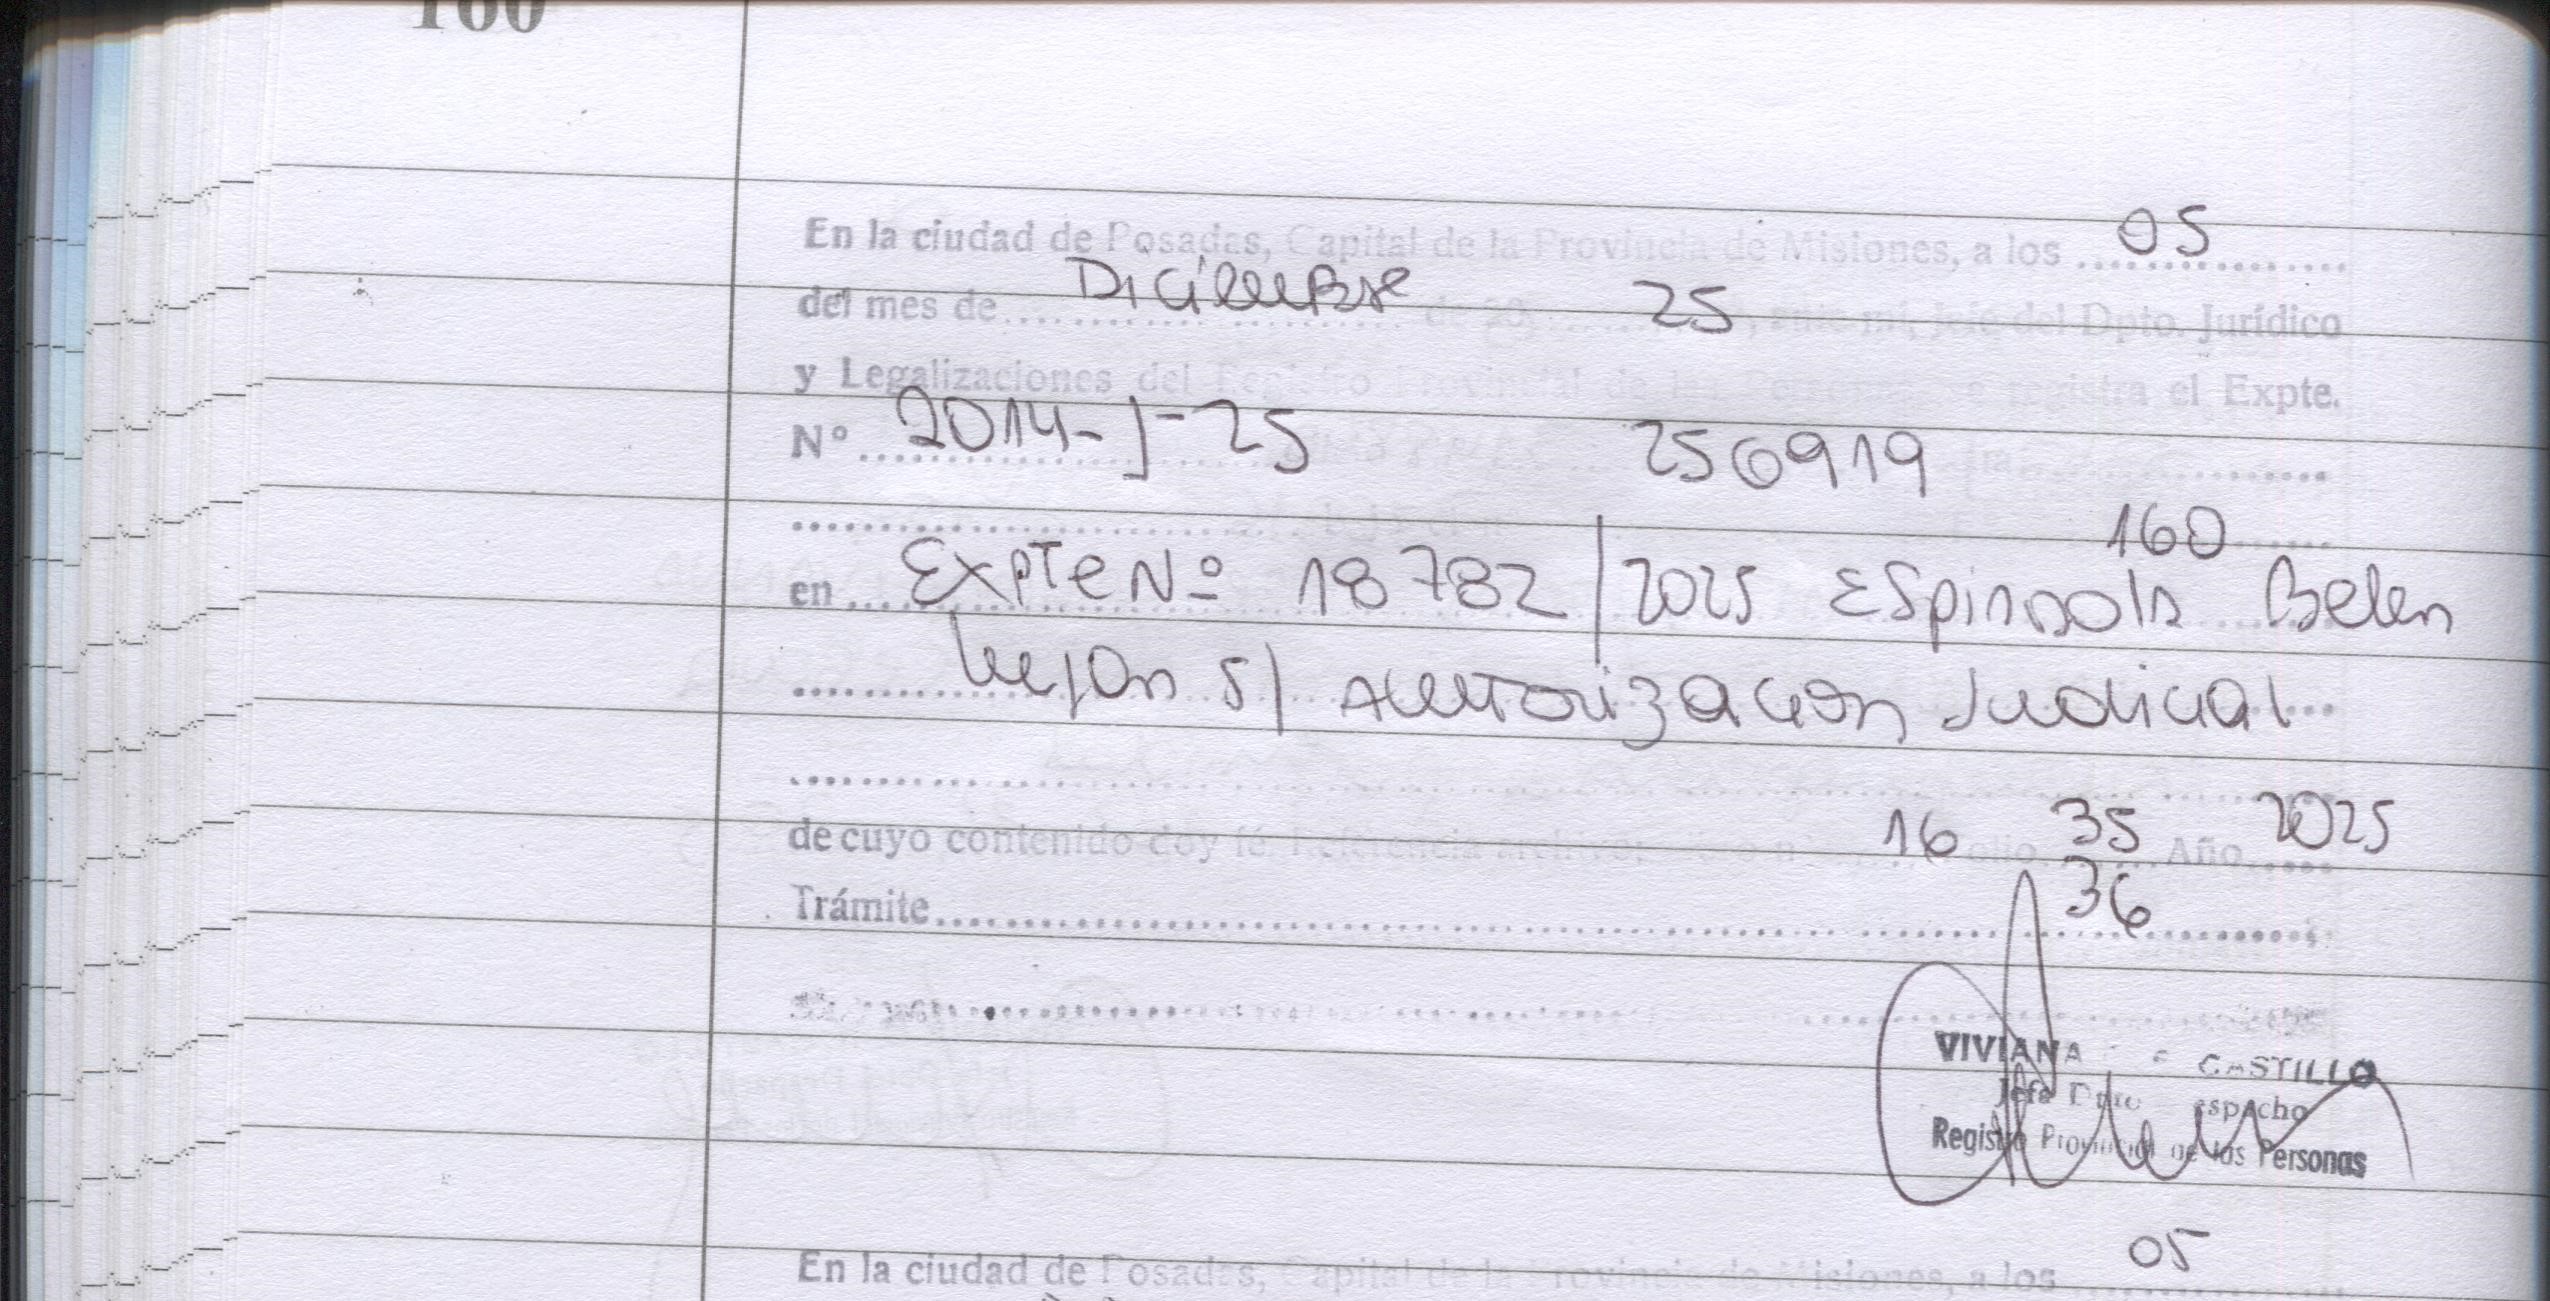 160
En la ciudad de Posadas, Capital de la Provincia de Misiones, a los 05
del mes de Diciembre de 20 25, ante mí, Jefe del Dpto. Jurídico
y Legalizaciones del Registro Provincial de las Personas se registra el Expte.
N° 2014-J-25 256919
160
en Expte Nº 18782/2025 Espindola Belen
s/ Autorizacion Judicial
de cuyo contenido doy fé. Referencia archivo: 16 Folio 35 Año 2025
36
Trámite
VIVIANA CASTILLO
Jefa Dpto espacho
Registro Provincial de las Personas
05
En la ciudad de Posadas, Capital de la Provincia de Misiones, a los